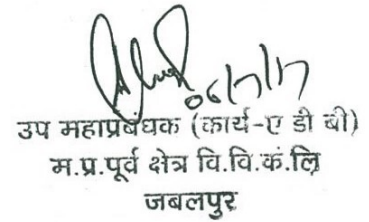 06/7/17
उप महाप्रबंधक (कार्य-ए डी बी)
म.प्र.पूर्व क्षेत्र वि.वि.कं.लि
जबलपुर